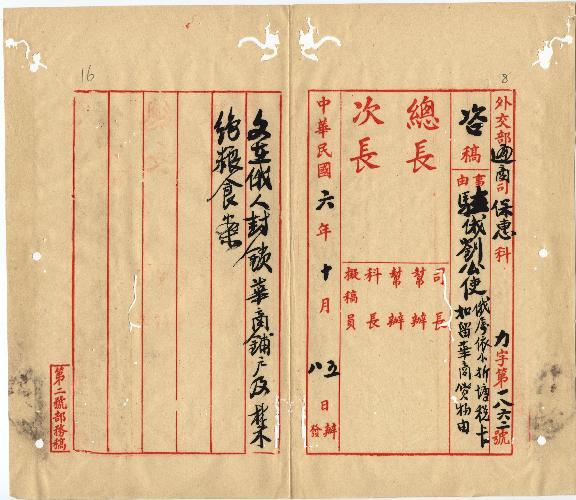 8
外交部通商司保惠科
力字第一八六二號
咨稿
事由
駐俄劉公使
俄屬依爾折增稅卡
扣留華商貨物由
總長
次長
司長
幫辦
幫辦
科長
擬稿員
中華民國六年十月五八日辦發
16
文在俄人封鎖華商鋪戶及
絕糧食案
第二號部務稿